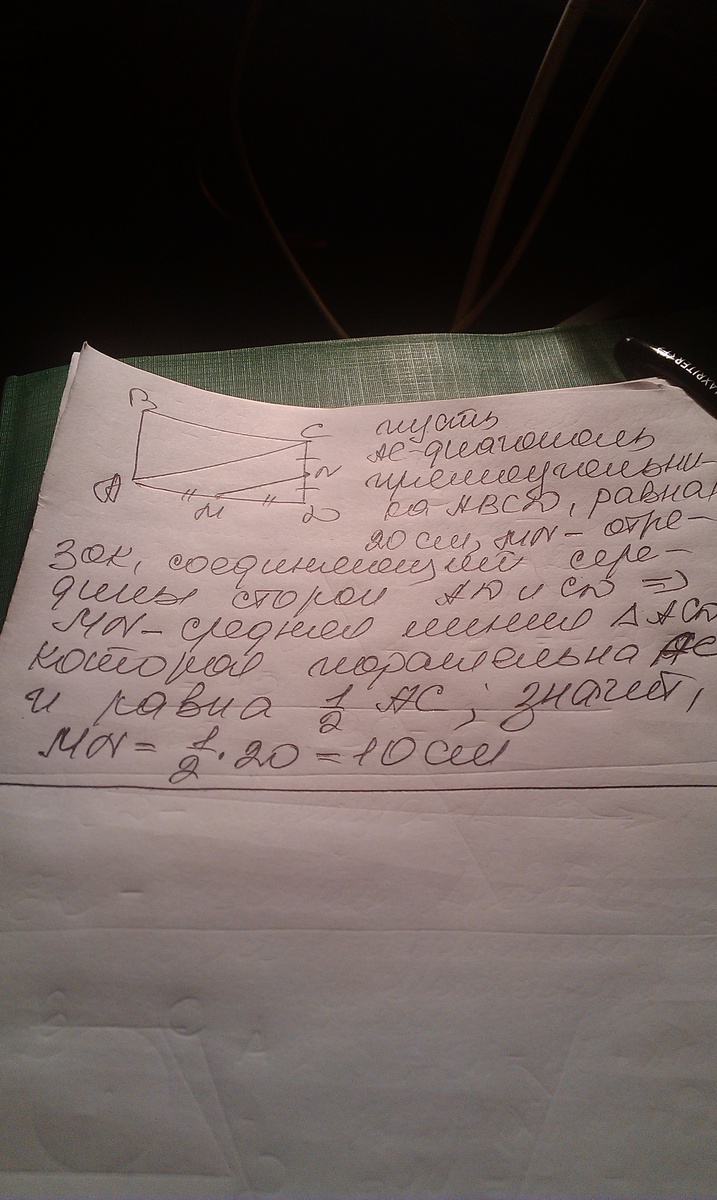 B
C
N
A
M
D
"
"
пусть
AC-диагональ
прямоугольни-
ка ABCD, равная
20 см, MN - отре-
зок, соединяющий сере-
дины сторон AD и CD =>
MN - средняя линия Δ ACD
которая параллельна AC
и равна 1/2 AC; значит,
MN = 1/2 · 20 = 10 см